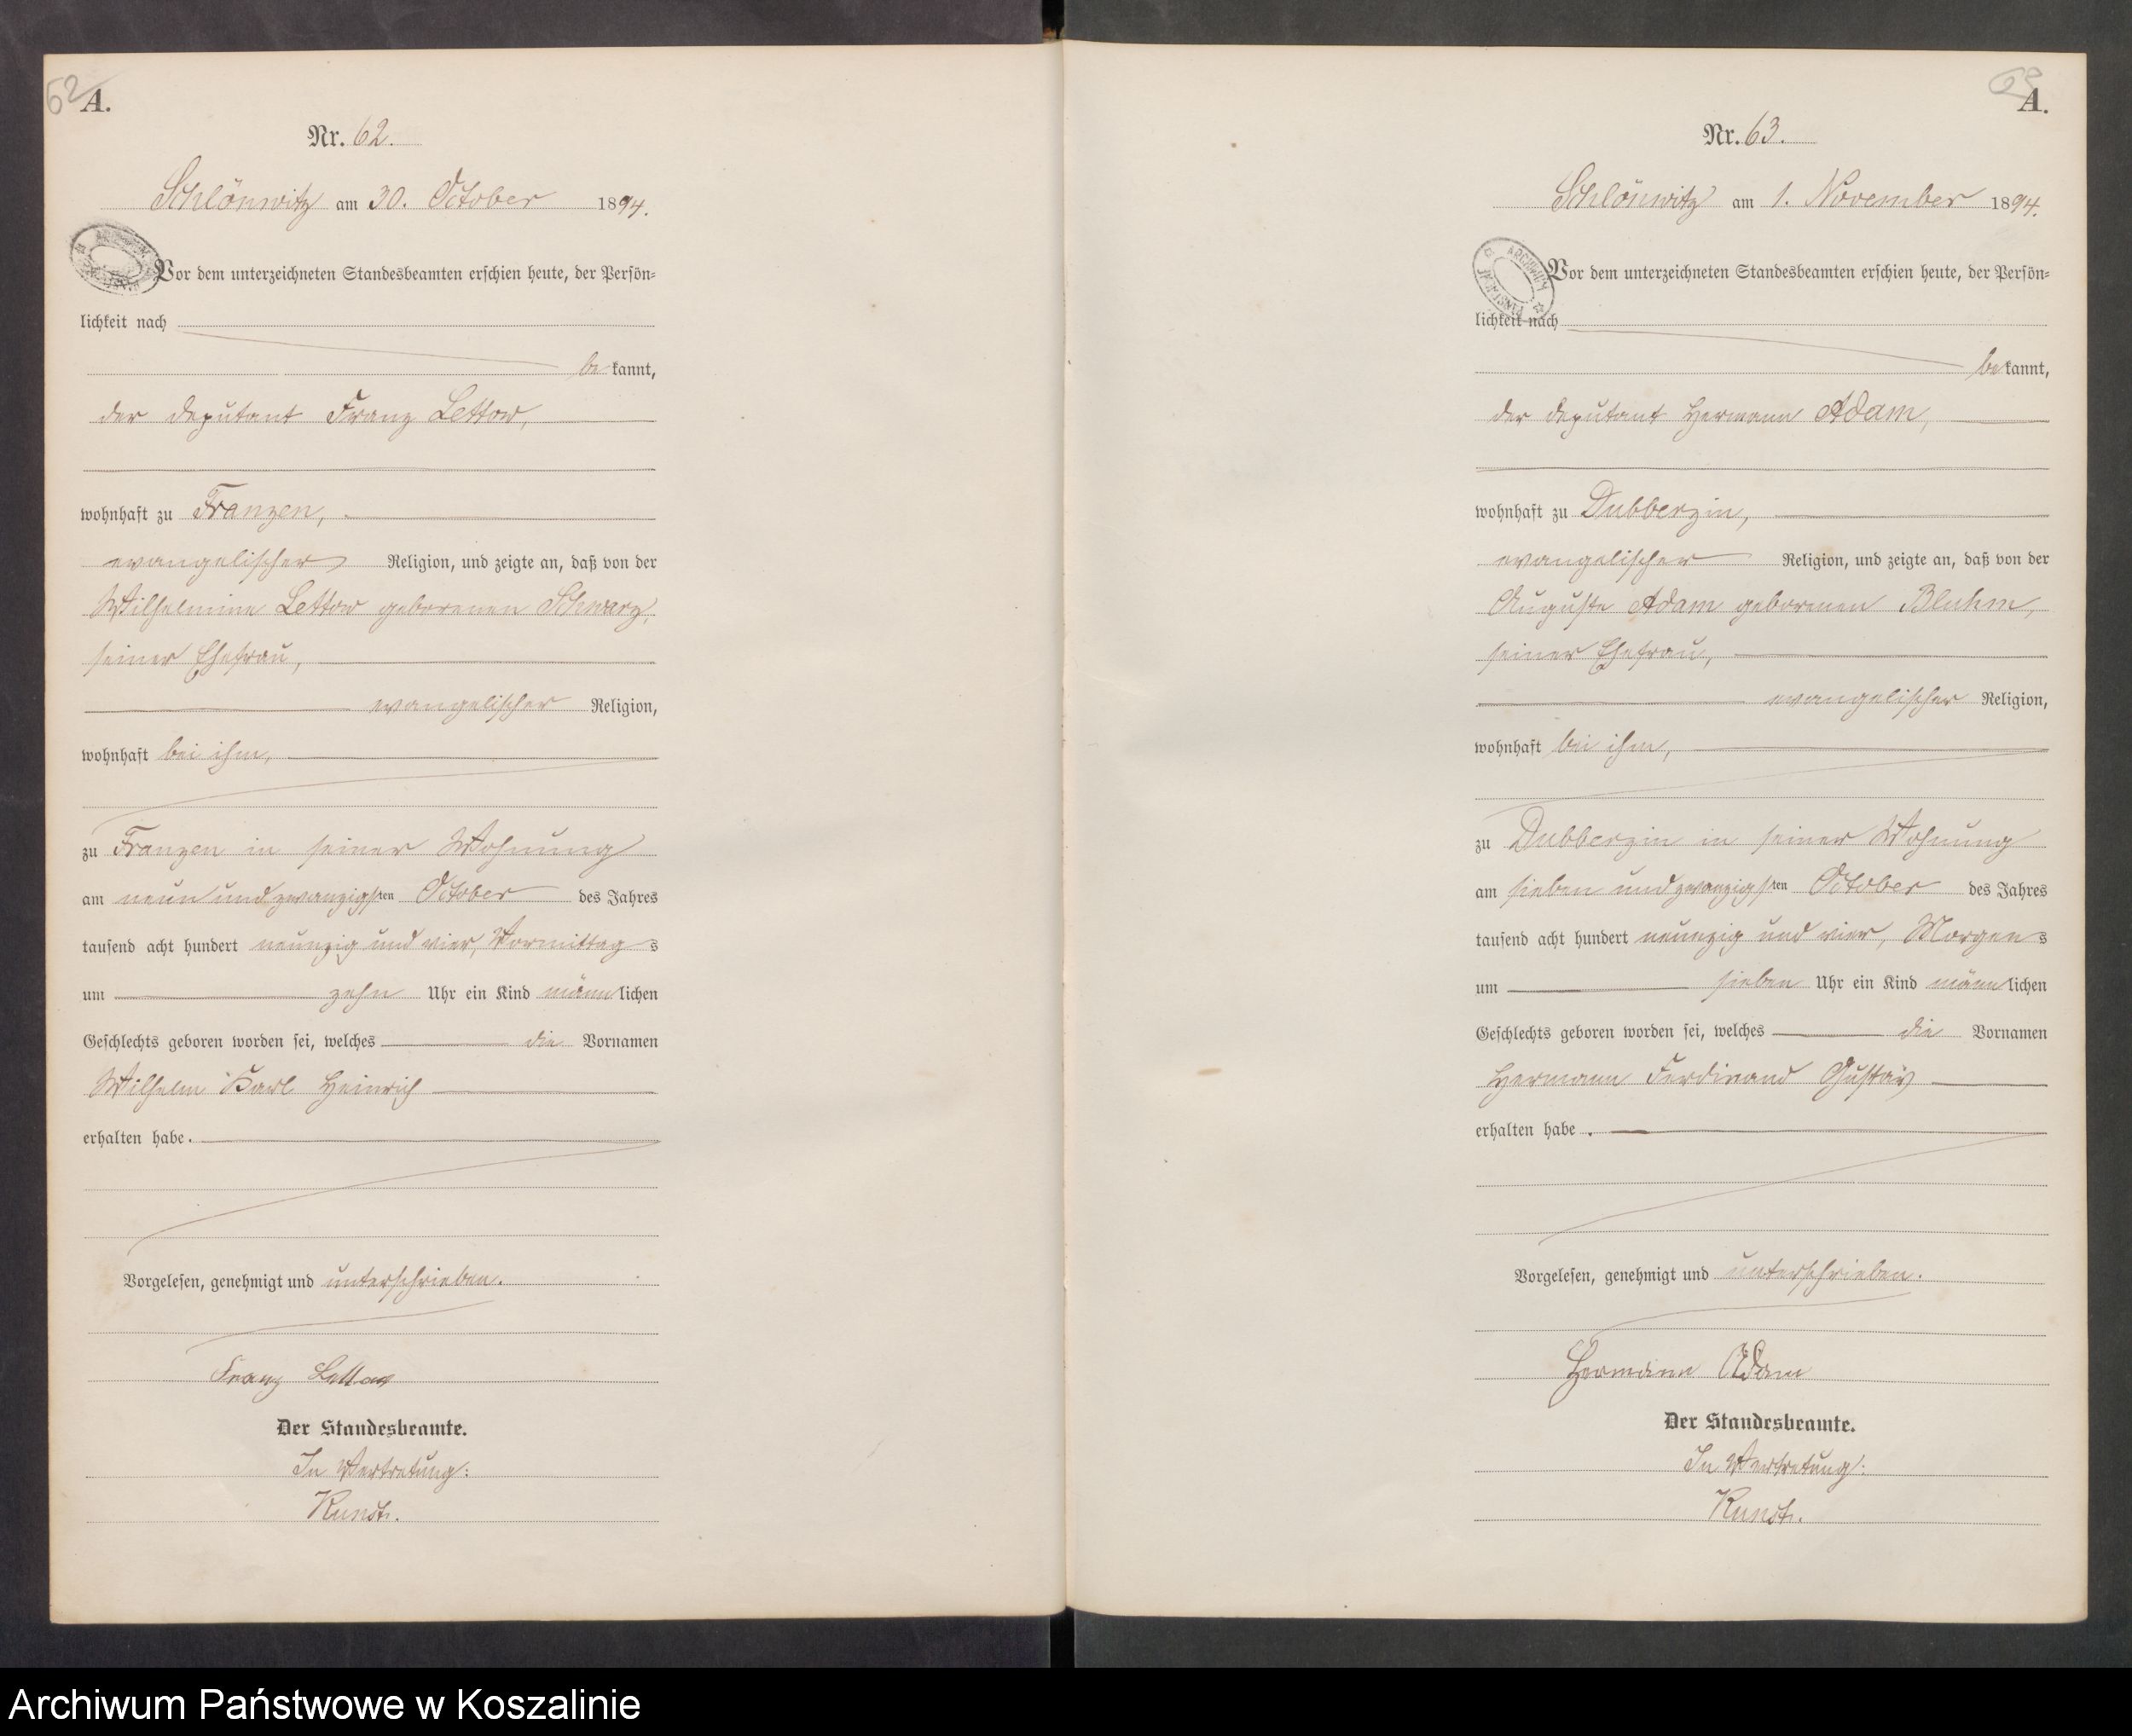 62
A.
Nr. 62.
Schlönwitz am 30. October 1894.
Vor dem unterzeichneten Standesbeamten erschien heute, der Persön=
lichkeit nach
bekannt,
der Deputant Franz Lettow,
wohnhaft zu Franzen,
evangelischer Religion, und zeigte an, daß von der
Wilhelmine Lettow geborenen Schwarz,
seiner Ehefrau,
evangelischer Religion,
wohnhaft bei ihm,
zu Franzen in seiner Wohnung
am neun und zwanzigsten October des Jahres
tausend acht hundert neunzig und vier, Vormittags
um zehn Uhr ein Kind männlichen
Geschlechts geboren worden sei, welches die Vornamen
Wilhelm Karl Heinrich
erhalten habe.
Vorgelesen, genehmigt und unterschrieben.
Franz Lettow
Der Standesbeamte.
In Vertretung:
Kunst.
63
A.
Nr. 63.
Schlönwitz am 1. November 1894.
ARCHIWUM
Vor dem unterzeichneten Standesbeamten erschien heute, der Persön=
lichkeit nach
bekannt,
der Deputant Hermann Adam,
wohnhaft zu Dubberzin,
evangelischer Religion, und zeigte an, daß von der
Auguste Adam geborenen Bluhm,
seiner Ehefrau,
evangelischer Religion,
wohnhaft bei ihm,
zu Dubberzin in seiner Wohnung
am sieben und zwanzigsten October des Jahres
tausend acht hundert neunzig und vier, Morgens
um sieben Uhr ein Kind männlichen
Geschlechts geboren worden sei, welches die Vornamen
Hermann Ferdinand Gustav
erhalten habe.
Vorgelesen, genehmigt und unterschrieben.
Hermann Adam
Der Standesbeamte.
In Vertretung:
Kunst.
Archiwum Państwowe w Koszalinie